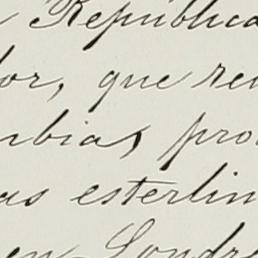 República
or, que re
mbia, pro
as esterlin
en Londre